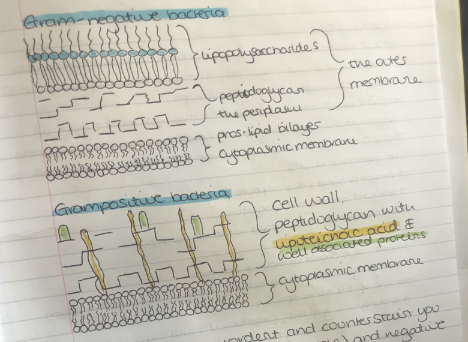 Gram-negative bacteria
lipopolysaccharides
the outer
membrane
peptidoglycan
the periplasm
phos-lipid bilayer
cytoplasmic membrane
Grampositive bacteria
cell wall,
peptidoglycan with
lipoteichoic acid &
well associated proteins
cytoplasmic membrane
and counterstain you
and negative